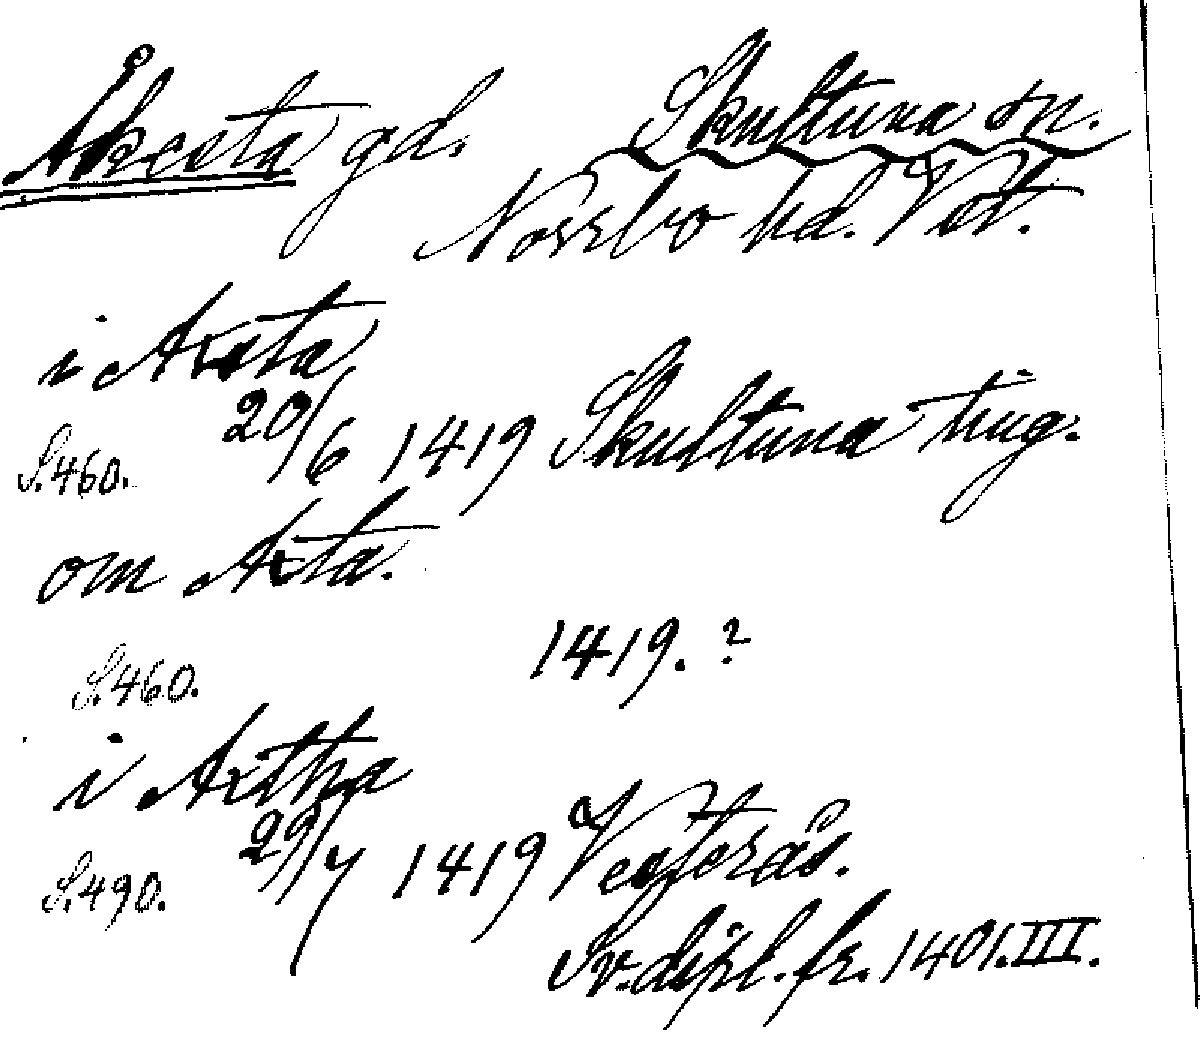 Åkesta gd. Skultuna sn.
Norrbo hd. Vstl.
i Axsta
S.460. 20/6 1419 Skultuna ting.
om Axta.
S.460. 1419.?
i Axtha
S.490. 29/7 1419 Vesterås.
Sv. dipl. fr. 1401. III.